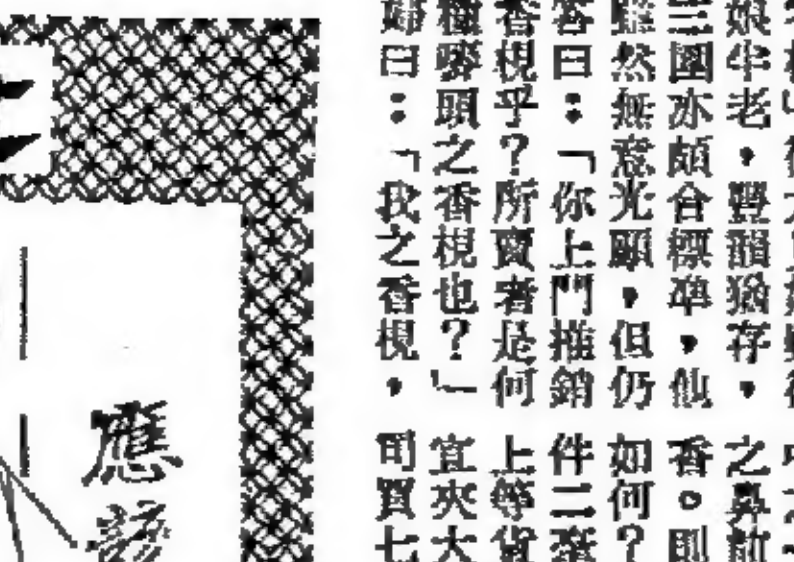 娘半老，豐韻猶存，
三圍亦頗合標準，他
雖然無意光顧，但仍
答曰：「你上門推銷
香梘乎？所賣者是何
種嘜頭之香梘也？」
婦曰：「我之香梘，
之鼻
香。則
如何？
件二
上等貨
宜夾大
買七
應該